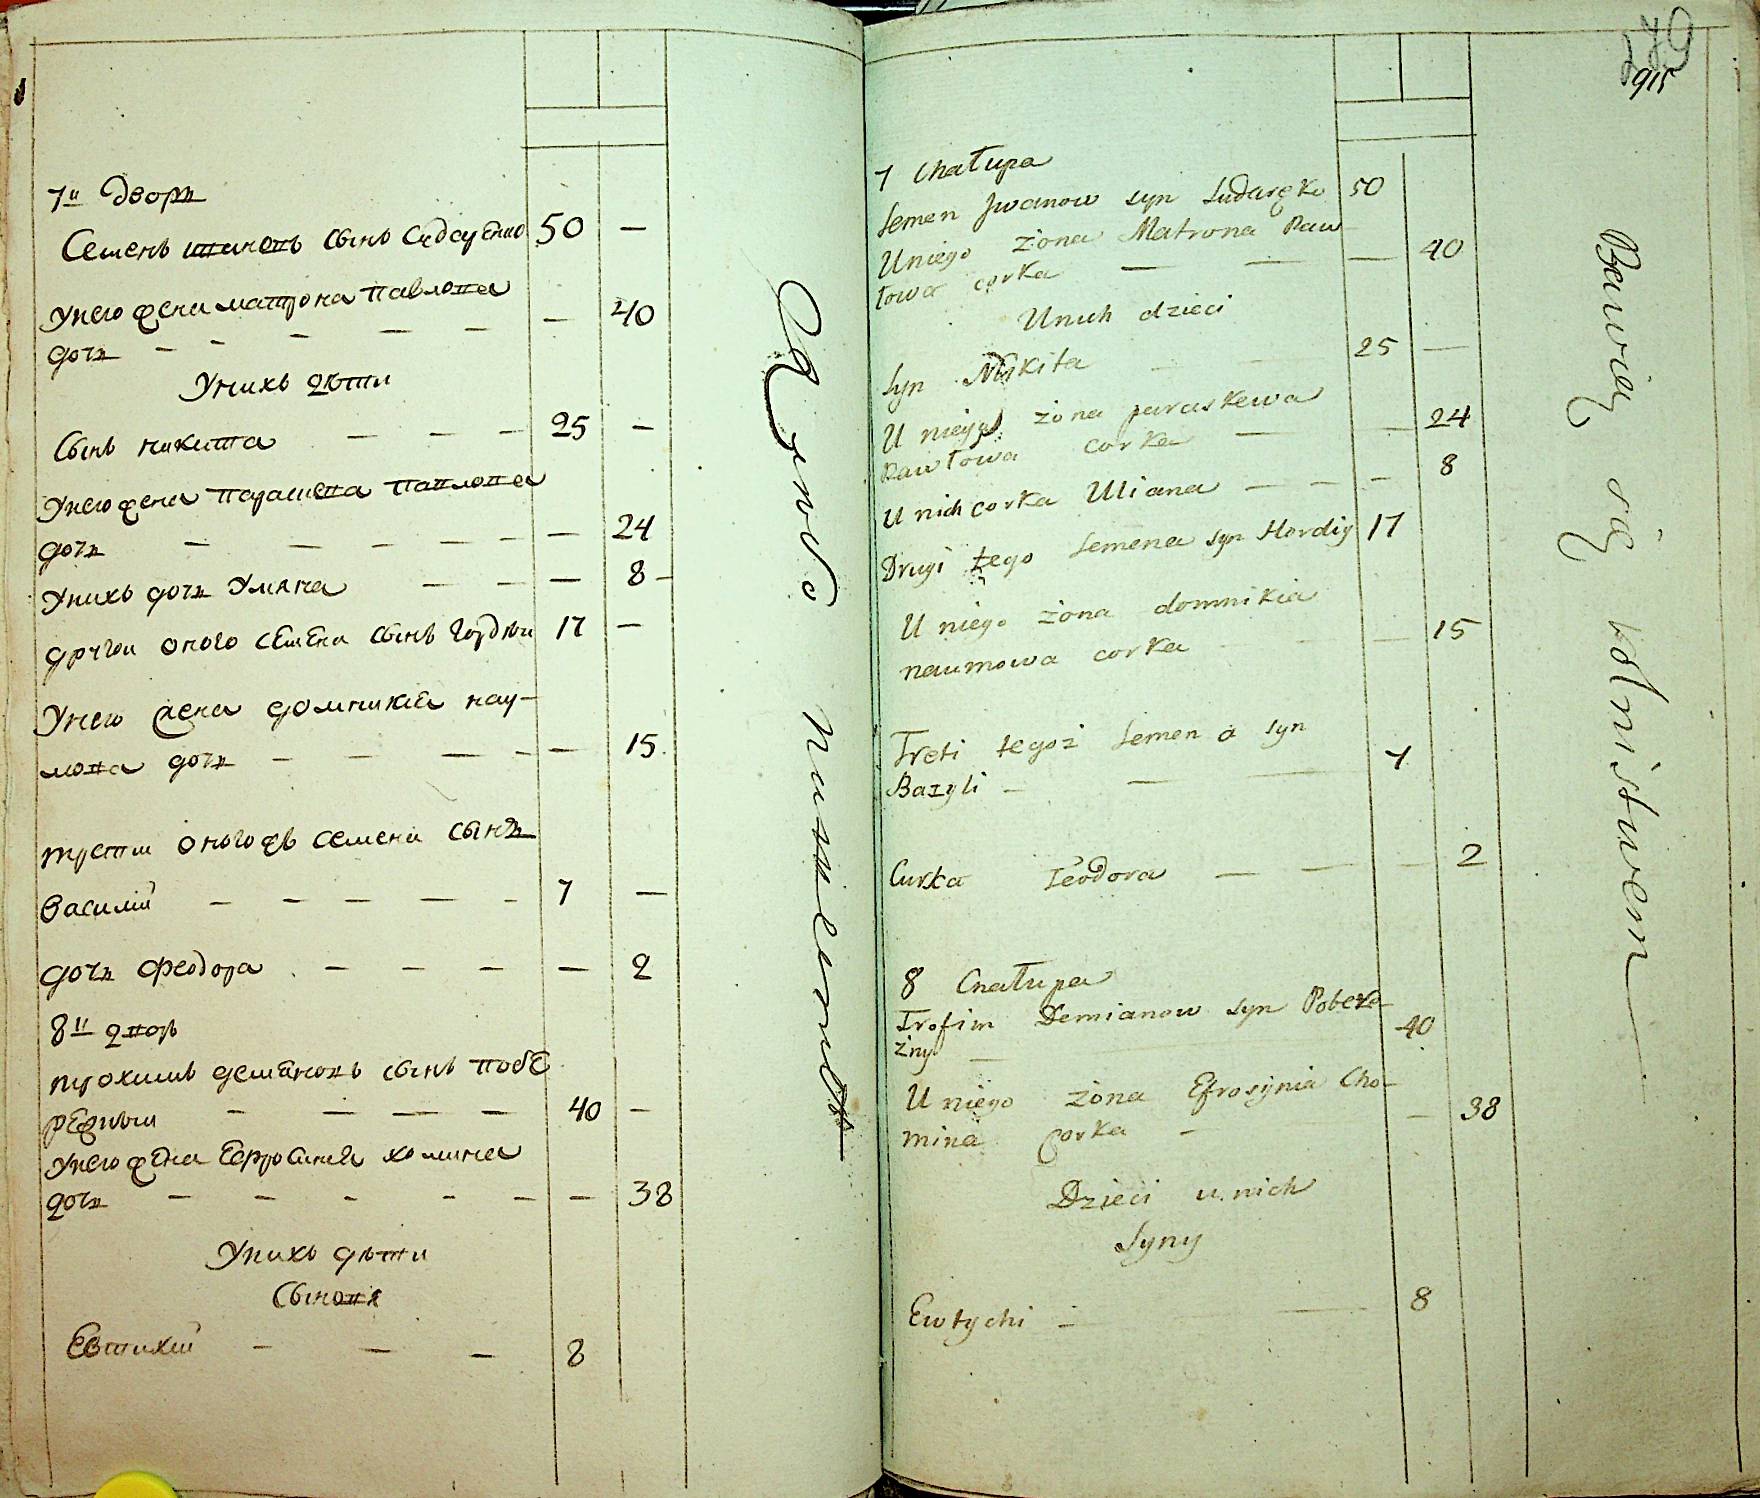 7й дворъ
Семенъ ивановъ сынъ Сидаренко 50 —
У него жена матрона павлова
дочь — — — — — — 40
У нихъ дѣти
Сынъ никита — — — 25 —
У него жена парасцева павлова
дочь — — — — — — 24
У нихъ дочь Уляна — — — 8 —
другой оного семена сынъ гордѣй 17 —
У него жена домникиа нау-
мова дочь — — — — — 15
третий оного жъ семена сынъ
Василий — — — — — 7 —
дочь феодора — — — — 2
8й дворъ
трохимъ демяновъ сынъ побе
режный — — — — 40 —
У него жена Евфросиния хомина
дочь — — — — — — 38
У нихъ дѣти
Сыновя
Евтихий — — — 8
279
915
7 Chałupa
Semen Jwanow syn Sudaręko 50
U niego żona Matrona Paw
łowa corka — — — 40
U nich dzieci
Syn Nikita 25 —
U niego żona paraskewa
Pawłowa corka — — 24
U nich corka Uliana — — — 8
Drugi tego Semena syn Hordiy 17
U niego żona domnikia
naumowa corka — 15
Treti tegoż Semena syn
Bazyli — — 7
Curka Teodora — — — 2
8 Chałupa
Trofim Demianow syn Pobere-
żny — 40
U niego żona Efrosynia Cho-
mina corka — — 38
Dzieci u nich
Syny
Ewtychi — — 8
Bawią się rolnistwem